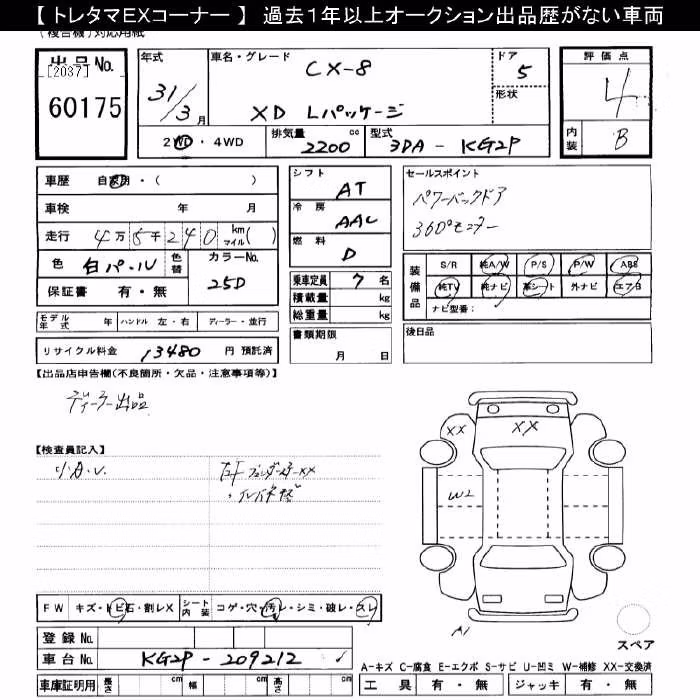 【 トレタマEXコーナー 】 過去１年以上オークション出品歴がない車両
出品No.
[2037]
60175
年式
31/3月
車名・グレード
CX-8
XD Lパッケージ
ドア
5
形状
2WD・4WD
排気量 2200 cc
型式 3DA - KG2P
評価点
4
内装 B
車歴 自家用・( )
車検 年 月
走行 4万5千240 km マイル( )
色 白パール 色替 カラーNo. 25D
保証書 有・無
シフト AT
冷房 AAC
燃料 D
乗車定員 7 名
積載量 kg
総重量 kg
書類期限
月 日
セールスポイント
パワーバックドア
360°モニター
装備品
S/R 純A/W P/S P/W ABS
純TV 純ナビ 革シート 外ナビ エアB
ナビ型番:
後日品
モデル年式 年 ハンドル 左・右 ディーラー・並行
リサイクル料金 13480 円 預託済
【出品店申告欄(不良箇所・欠品・注意事項等)】
ディーラー出品
【検査員記入】
小A.U.
XX
XX
W2
A1
FW キズ・トビ石・割レX シート内装 コゲ・穴・汚レ・シミ・破レ・スレ
登録No.
車台No. KG2P - 209212
車庫証明用 長さ cm 幅 cm 高さ cm
スペア
A-キズ C-腐食 E-エクボ S-サビ U-凹ミ W-補修 XX-交換済
工具 有・無 ジャッキ 有・無